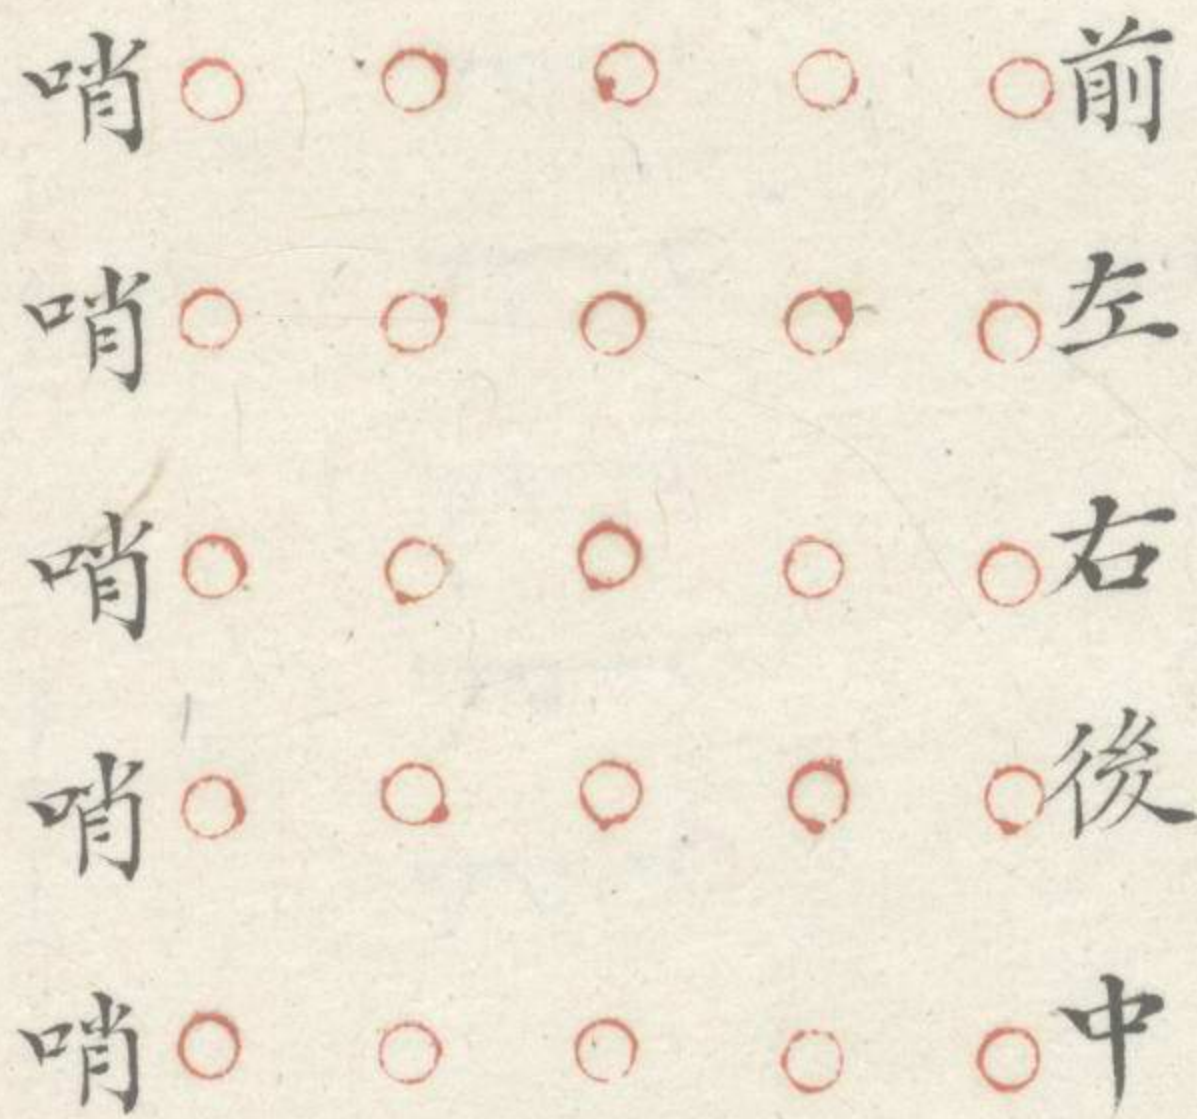 前哨
左哨
右哨
後哨
中哨